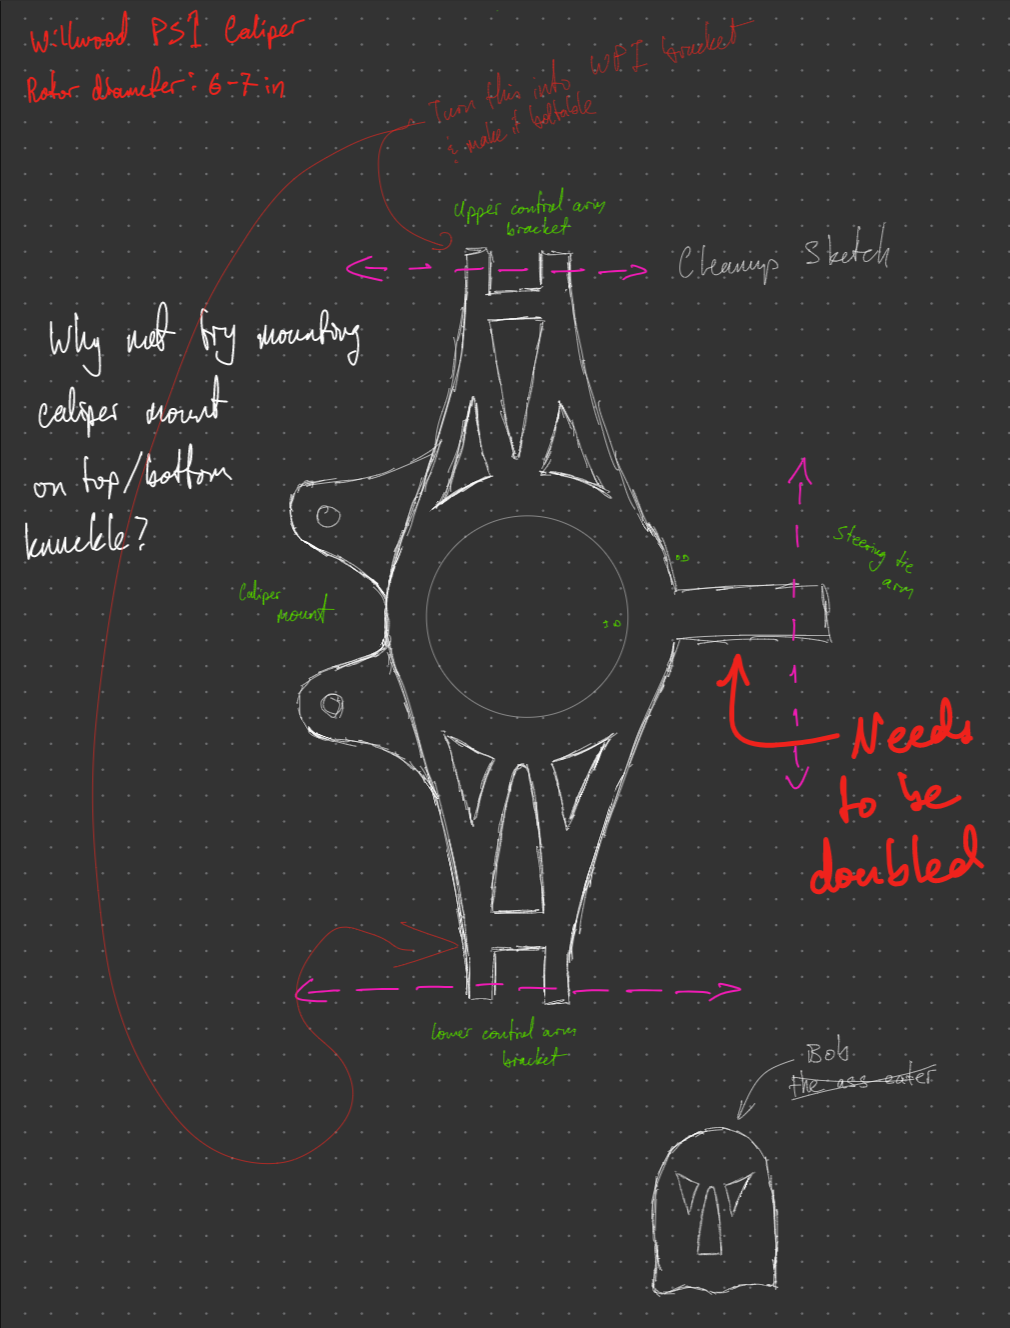 Willwood PS1 Caliper
Rotor diameter: 6-7 in
Turn this into WPI bracket
& make it boltable
Upper control arm
bracket
Cleanup Sketch
Why not try mounting
caliper mount
on top/bottom
knuckle?
Steering tie
arm
OD
Caliper
mount
ID
Needs
to be
doubled
Lower control arm
bracket
Bob
the ass eater